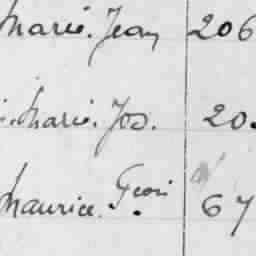 Marie. Jean 206
Marie. Jos. 20.
Maurice. Geor 67